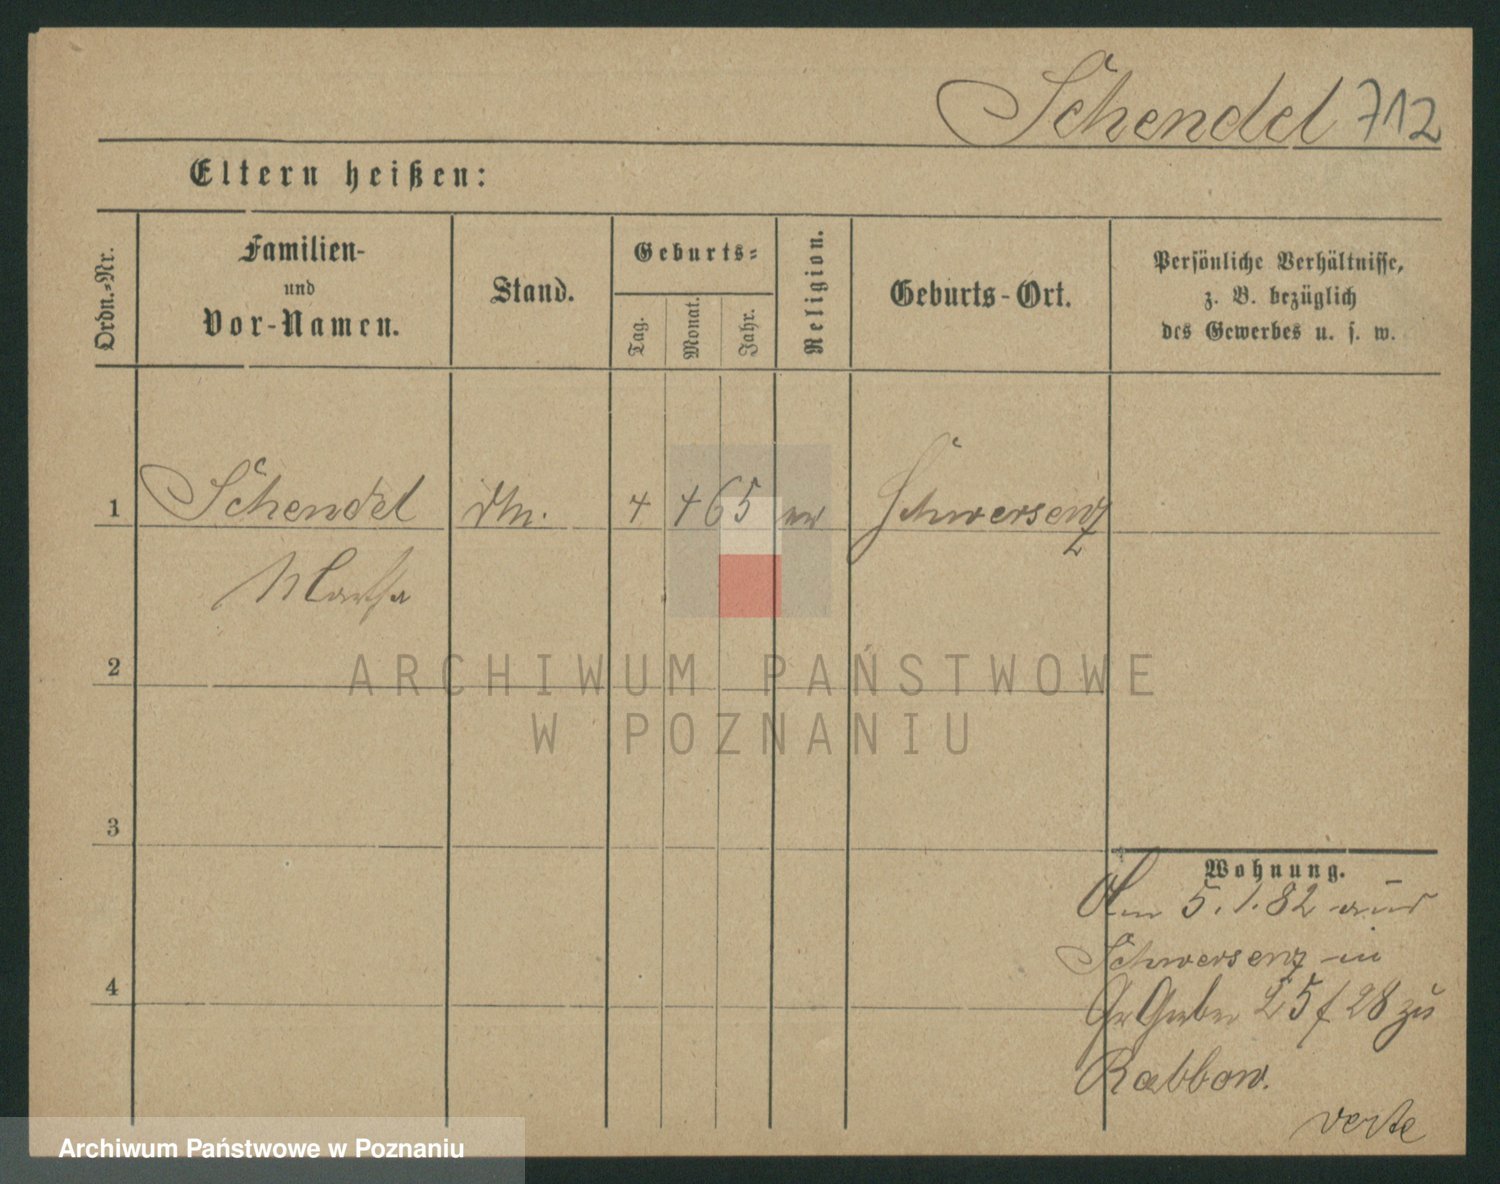 Schendel 712
Eltern heißen:
Ordn.-Nr.
Familien-
und
Vor-Namen.
Stand.
Geburts-
Tag.
Monat.
Jahr.
Religion.
Geburts-Ort.
Persönliche Verhältnisse,
z. B. bezüglich
des Gewerbes u. s. w.
1 Schendel 4 4 65 Schwersenz
2
ARCHIWUM PAŃSTWOWE
W POZNANIU
3
4
Wohnung.
Am 5.1.82 aus
Schwersenz in
Gr Gerber 28 zu
Rabbow.
verte
Archiwum Państwowe w Poznaniu